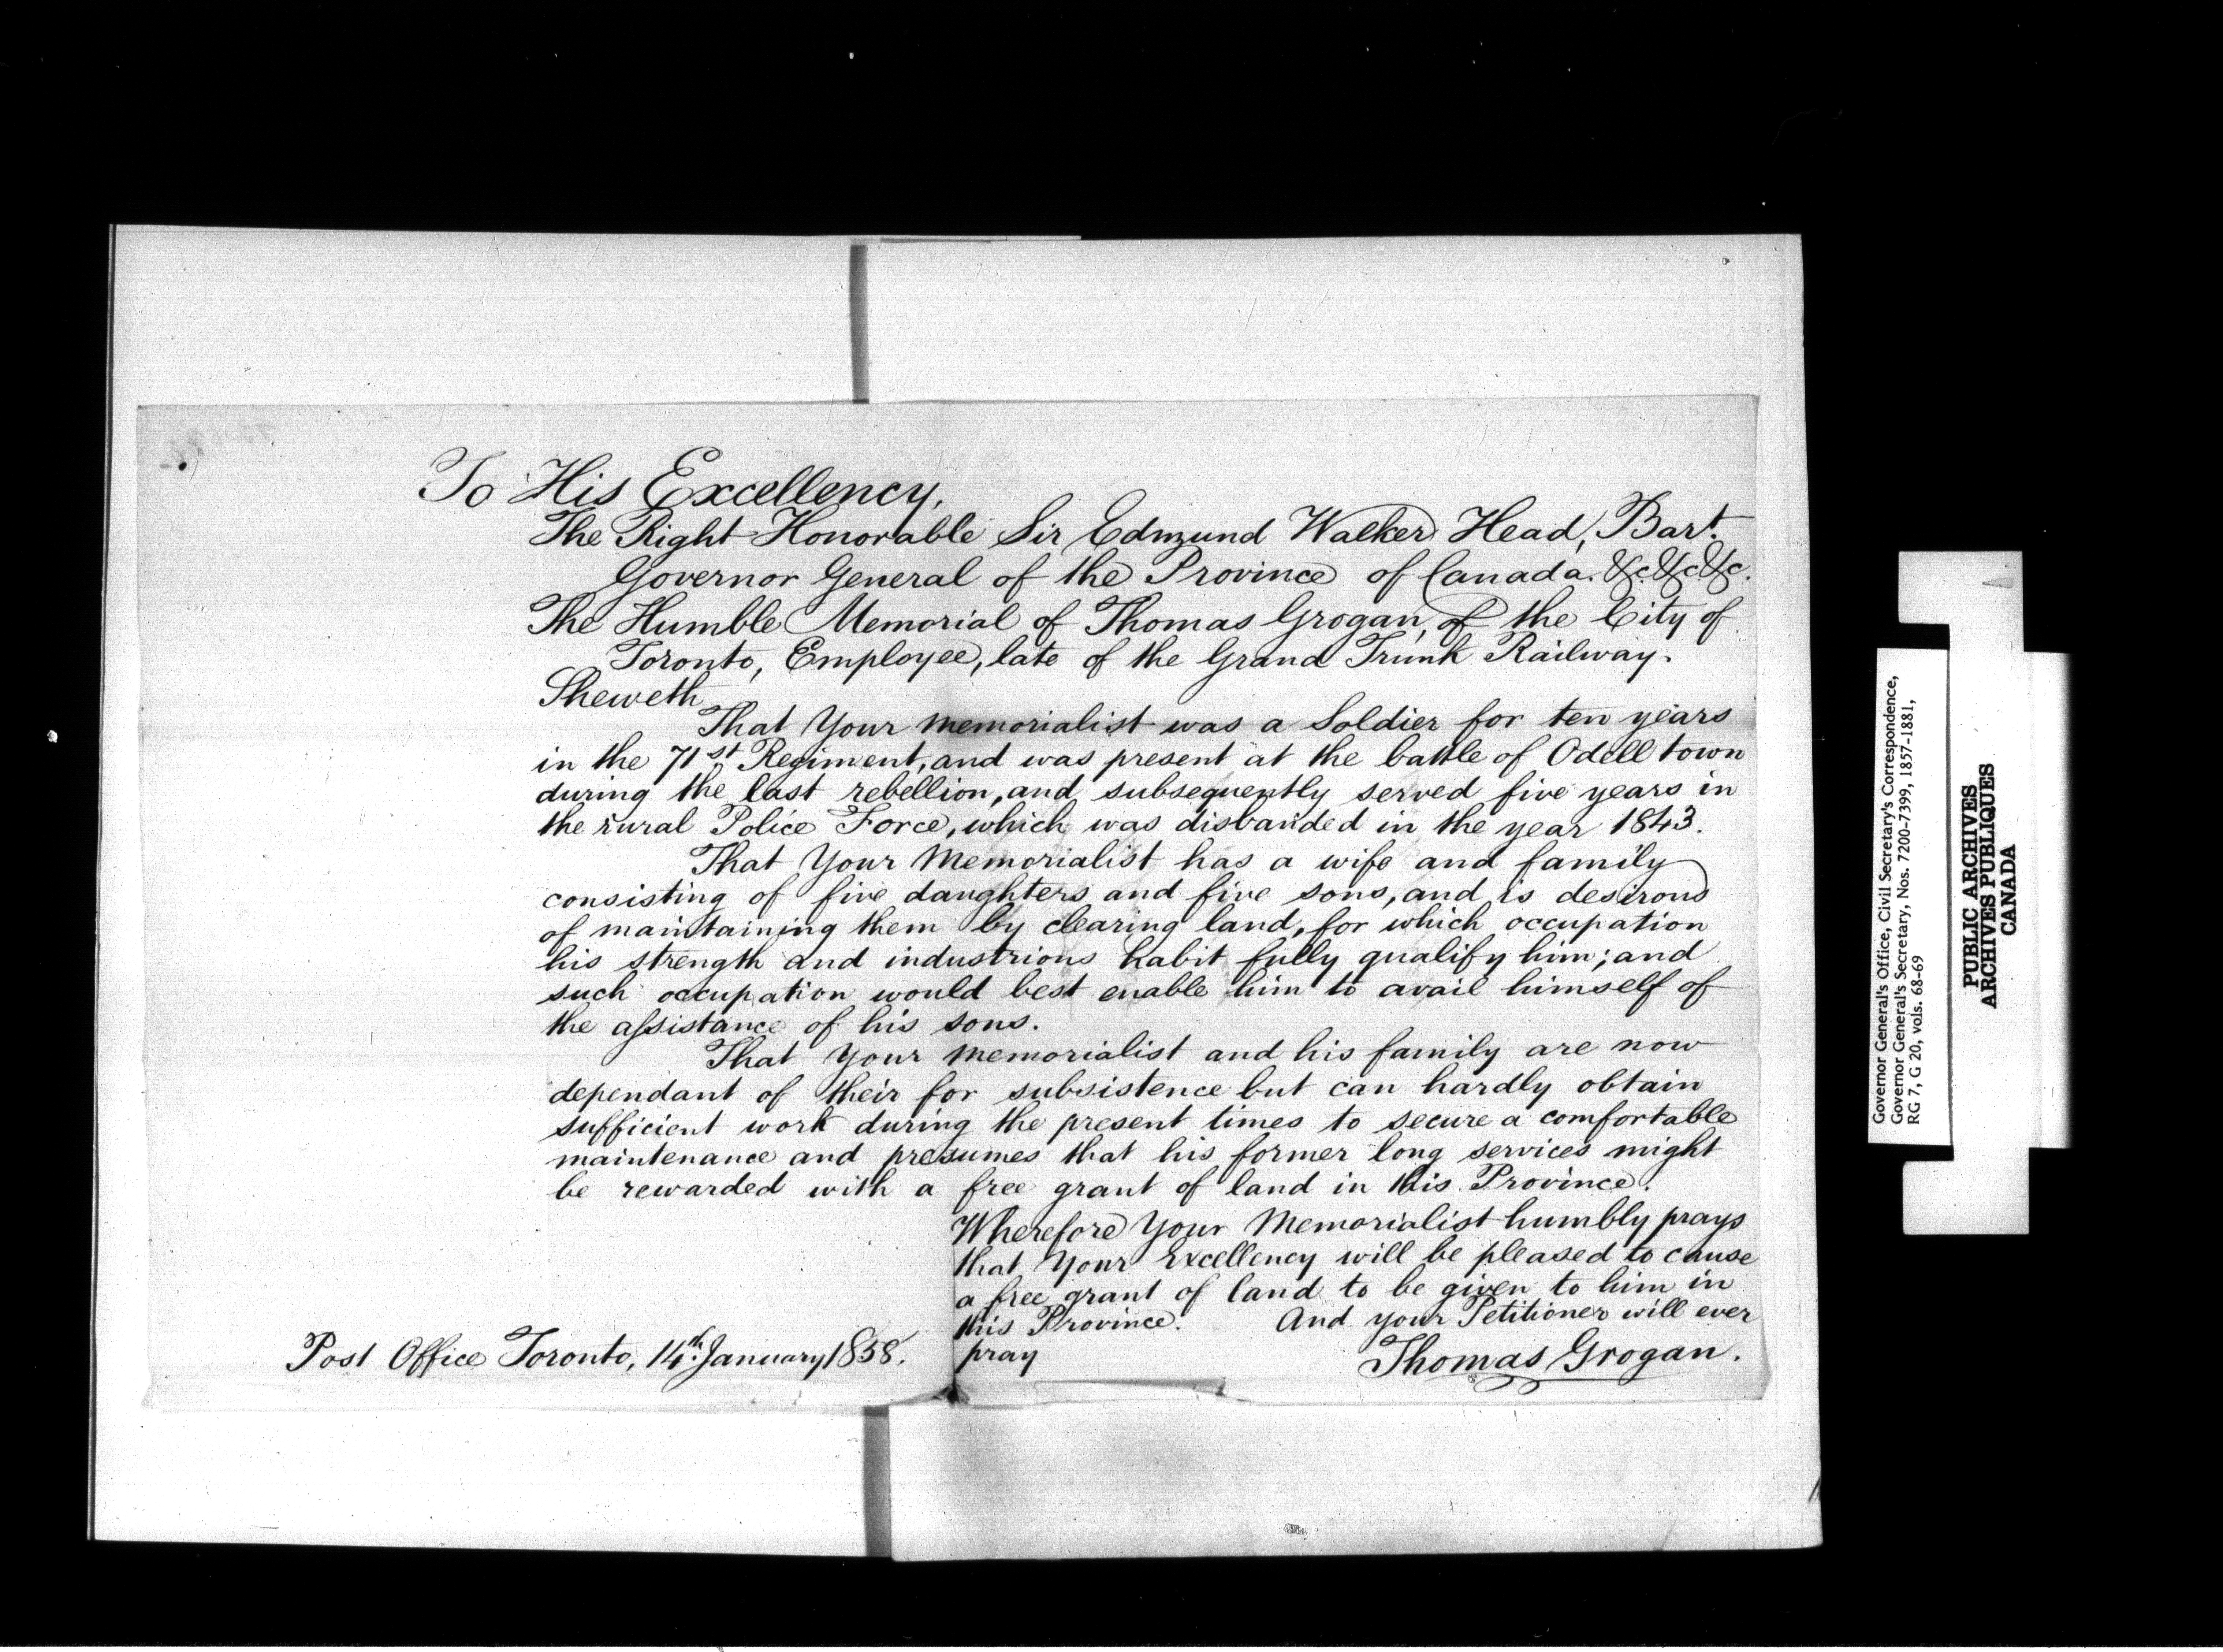 To His Excellency,
The Right Honorable Sir Edmund Walker Head, Bart.
Governor General of the Province of Canada. &c. &c. &c.
The Humble Memorial of Thomas Grogan, of the City of
Toronto, Employee, late of the Grand Trunk Railway.
Sheweth
That Your Memorialist was a Soldier for ten years
in the 71st Regiment, and was present at the battle of Odell town
during the last rebellion, and subsequently served five years in
the rural Police Force, which was disbanded in the year 1843.
That Your Memorialist has a wife and family
consisting of five daughters and five sons, and is desirous
of maintaining them by clearing land, for which occupation
his strength and industrious habit fully qualify him; and
such occupation would best enable him to avail himself of
the assistance of his sons.
That Your Memorialist and his family are now
dependant of their for subsistence but can hardly obtain
sufficient work during the present times to secure a comfortable
maintenance and presumes that his former long services might
be rewarded with a free grant of land in this Province.
Wherefore Your Memorialist humbly prays
that Your Excellency will be pleased to cause
a free grant of land to be given to him in
this Province. And your Petitioner will ever
pray
Thomas Grogan.
Post Office Toronto, 14th January 1858.
Governor General's Office, Civil Secretary's Correspondence,
Governor General's Secretary, Nos. 7200-7399, 1857-1881,
RG 7, G 20, vols. 68-69
PUBLIC ARCHIVES
ARCHIVES PUBLIQUES
CANADA